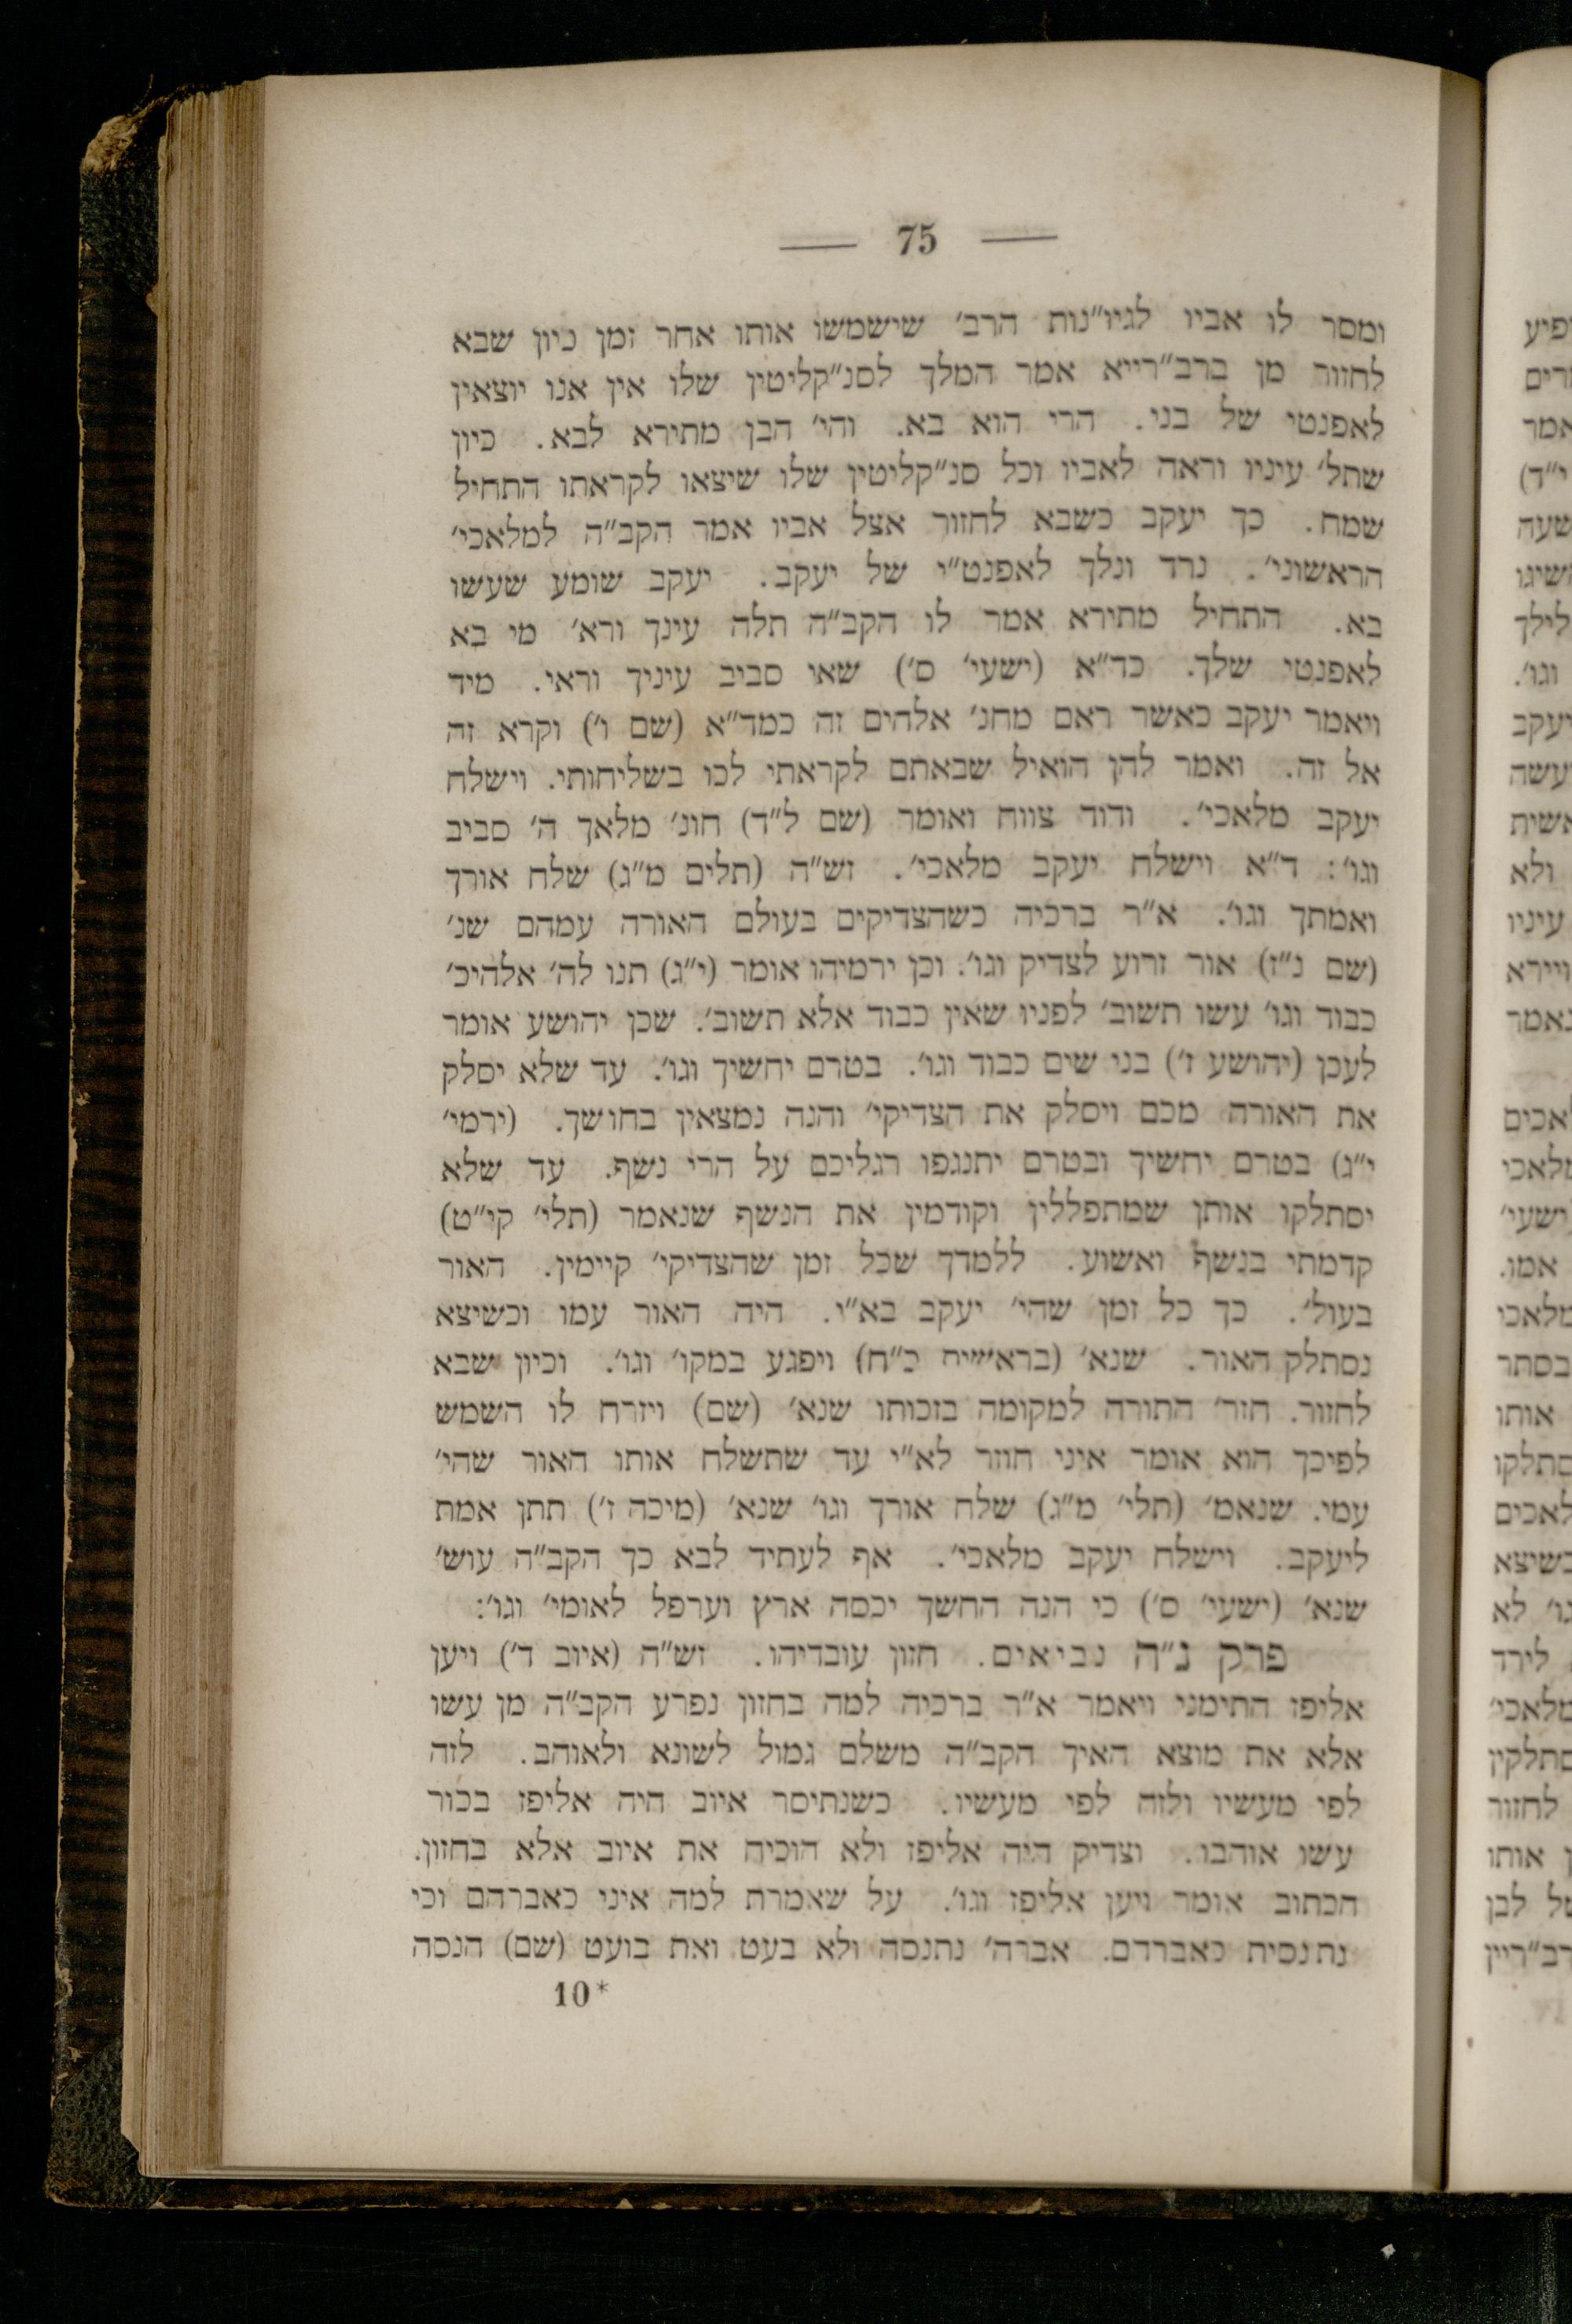 — 75 —
ומסר לו אביו לגיו״נות הרב׳ שישמשו אותו אחר זמן כיון שבא
לחזור מן ברב״רייא אמר המלך לסנ״קליטין שלו אין אנו יוצאין
לאפנטי של בני. הרי הוא בא. והי׳ הבן מתירא לבא. כיון
שתל׳ עיניו וראה לאביו וכל סנ״קליטין שלו שיצאו לקראתו התחיל
שמח. כך יעקב כשבא לחזור אצל אביו אמר הקב״ה למלאכי׳
הראשוני׳. נרד ונלך לאפנט״י של יעקב. יעקב שומע שעשו
בא. התחיל מתירא אמר לו הקב״ה תלה עינך ורא׳ מי בא
לאפנטי שלך. כד״א (ישעי׳ ס׳) שאי סביב עיניך וראי. מיד
ויאמר יעקב כאשר ראם מחנ׳ אלהים זה כמד״א (שם ו׳) וקרא זה
אל זה. ואמר להן הואיל שבאתם לקראתי לכו בשליחותי. וישלח
יעקב מלאכי׳. ודוד צווח ואומר (שם ל״ד) חונ׳ מלאך ה׳ סביב
וגו׳: ד״א וישלח יעקב מלאכי׳. זש״ה (תלים מ״ג) שלח אורך
ואמתך וגו׳. א״ר ברכיה כשהצדיקים בעולם האורה עמהם שנ׳
(שם נ״ז) אור זרוע לצדיק וגו׳. וכן ירמיהו אומר (י״ג) תנו לה׳ אלהיכ׳
כבוד וגו׳ עשו תשוב׳ לפניו שאין כבוד אלא תשוב׳. שכן יהושע אומר
לעכן (יהושע ז׳) בני שים כבוד וגו׳. בטרם יחשיך וגו׳. עד שלא יסלק
את האורה מכם ויסלק את הצדיקי׳ והנה נמצאין בחושך. (ירמי׳
י״ג) בטרם יחשיך ובטרם יתנגפו רגליכם על הרי נשף. עד שלא
יסתלקו אותן שמתפללין וקודמין את הנשף שנאמר (תלי׳ קי״ט)
קדמתי בנשף ואשוע. ללמדך שכל זמן שהצדיקי׳ קיימין. האור
בעול׳. כך כל זמן שהי׳ יעקב בא״י. היה האור עמו וכשיצא
נסתלק האור. שנא׳ (בראשית כ״ח) ויפגע במקו׳ וגו׳. וכיון שבא
לחזור. חזר׳ התורה למקומה בזכותו שנא׳ (שם) ויזרח לו השמש
לפיכך הוא אומר איני חוזר לא״י עד שתשלח אותו האור שהי׳
עמי. שנאמ׳ (תלי׳ מ״ג) שלח אורך וגו׳ שנא׳ (מיכה ז׳) תתן אמת
ליעקב. וישלח יעקב מלאכי׳. אף לעתיד לבא כך הקב״ה עוש׳
שנא׳ (ישעי׳ ס׳) כי הנה החשך יכסה ארץ וערפל לאומי׳ וגו׳:
פרק נ״ה נביאים. חזון עובדיהו. זש״ה (איוב ד׳) ויען
אליפז התימני ויאמר א״ר ברכיה למה בחזון נפרע הקב״ה מן עשו
אלא את מוצא האיך הקב״ה משלם גמול לשונא ולאוהב. לזה
לפי מעשיו ולזה לפי מעשיו. כשנתיסר איוב היה אליפז בכור
עשו אוהבו. וצדיק היה אליפז ולא הוכיח את איוב אלא בחזון.
הכתוב אומר ויען אליפז וגו׳. על שאמרת למה איני כאברהם וכי
נתנסית כאברהם. אברה׳ נתנסה ולא בעט ואת בועט (שם) הנסה
10*